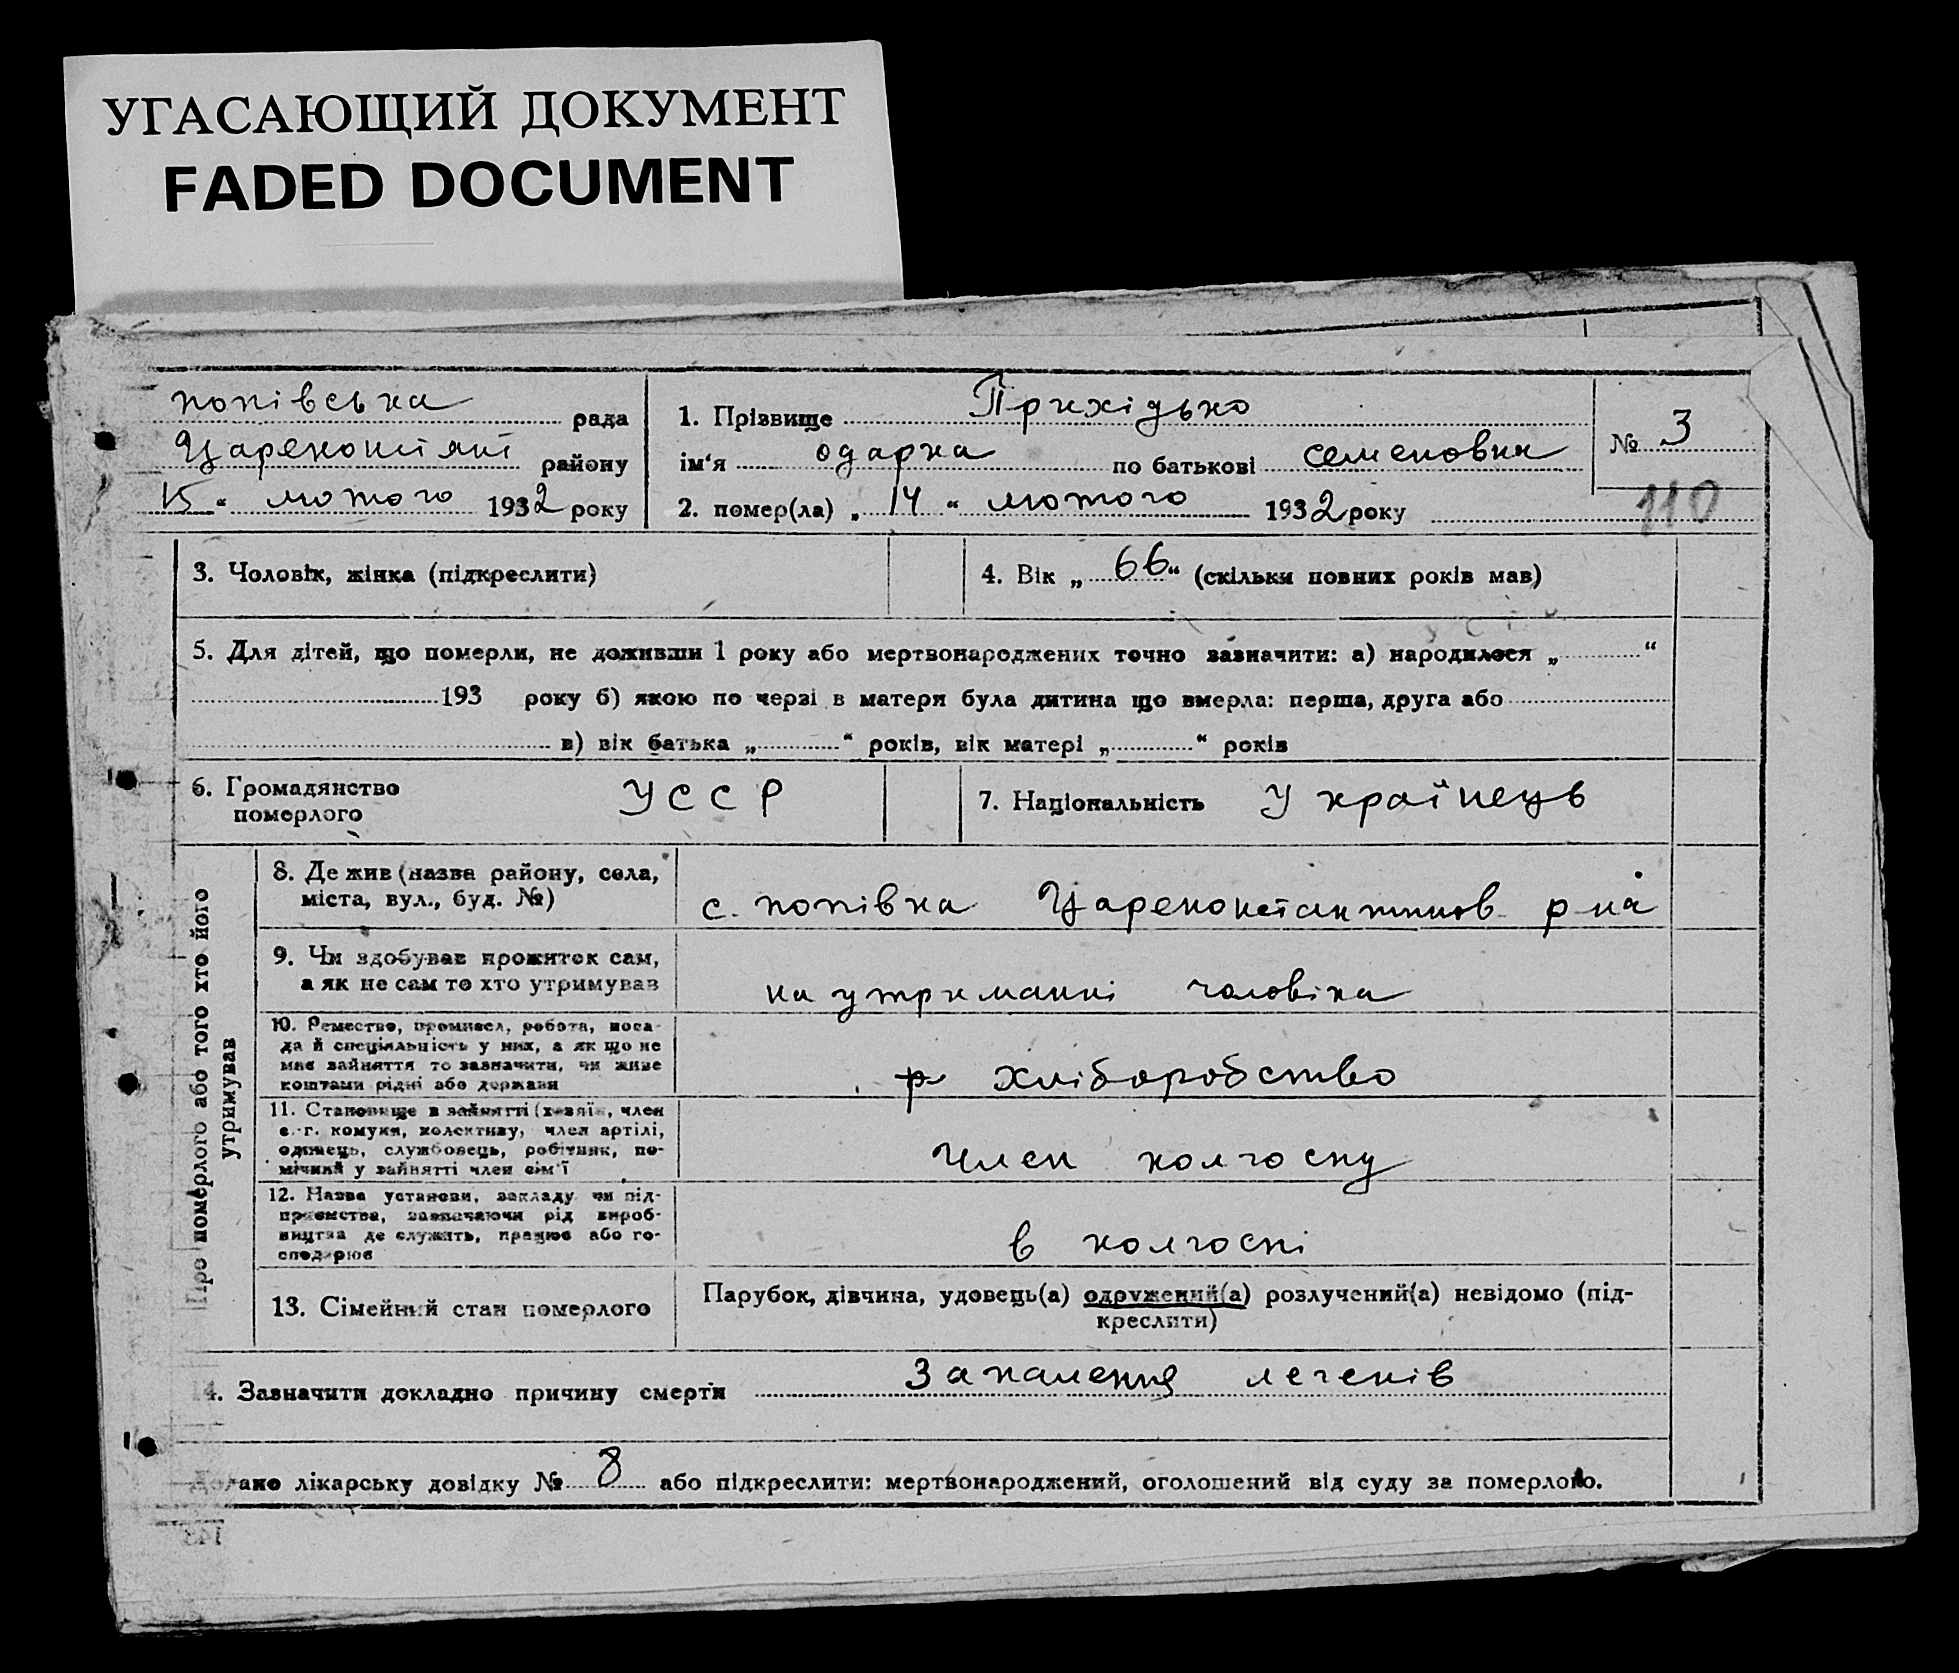 УГАСАЮЩИЙ ДОКУМЕНТ
FADED DOCUMENT
попівська рада
Цареконстянт району
15 “ лютого 1932 року
1. Прізвище Прихідько
ім‘я одарка по батькові семеновна
2. помер(ла) „ 14 “ лютого 1932 року
№ 3
110
3. Чоловік, жінка (підкреслити)
4. Вік „ 66 “ (скільки повних років мав)
5. Для дітей, що померли, не доживши 1 року або мертвонароджених точно зазначити: а) народилося „ “
193 року б) якою по черзі в матері була дитина що вмерла: перша, друга або
в) вік батька „ “ років, вік матері „ “ років
6. Громадянство
померлого
УССР
7. Національність Українець
Про померлого або того хто його
утримував
8. Де жив (назва району, села,
міста, вул., буд. №)
с. попівка Цареконстантинов р-на
9. Чи здобував прожиток сам,
а як не сам то хто утримував
на утриманні чоловіка
10. Ремество, промисел, робота, поса-
да й спеціяльність у них, а як що не
має зайняття то зазначити, чи живе
коштами рідні або держави
хліборобство
11. Становище в зайнятті (хазяїн, член
с.-г. комуни, колективу, член артілі,
одинець, службовець, робітник, по-
мічний у зайнятті член сім‘ї
Член колгоспу
12. Назва установи, закладу чи під-
приємства, зазначаючи рід вироб-
ництва де служить, працює або го-
сподарює
в колгоспі
13. Сімейний стан померлого
Парубок, дівчина, удовець(а) одружений(а) розлучений(а) невідомо (під-
креслити)
14. Зазначити докладно причину смерти Запалення легенів
Додано лікарську довідку № 8 або підкреслити: мертвонароджений, оголошений від суду за померлого.